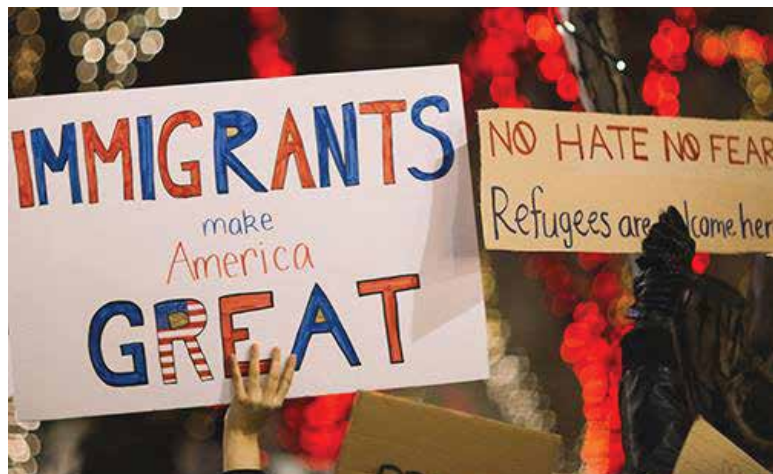 IMMIGRANTS
make
America
GREAT
NO HATE NO FEAR
Refugees are